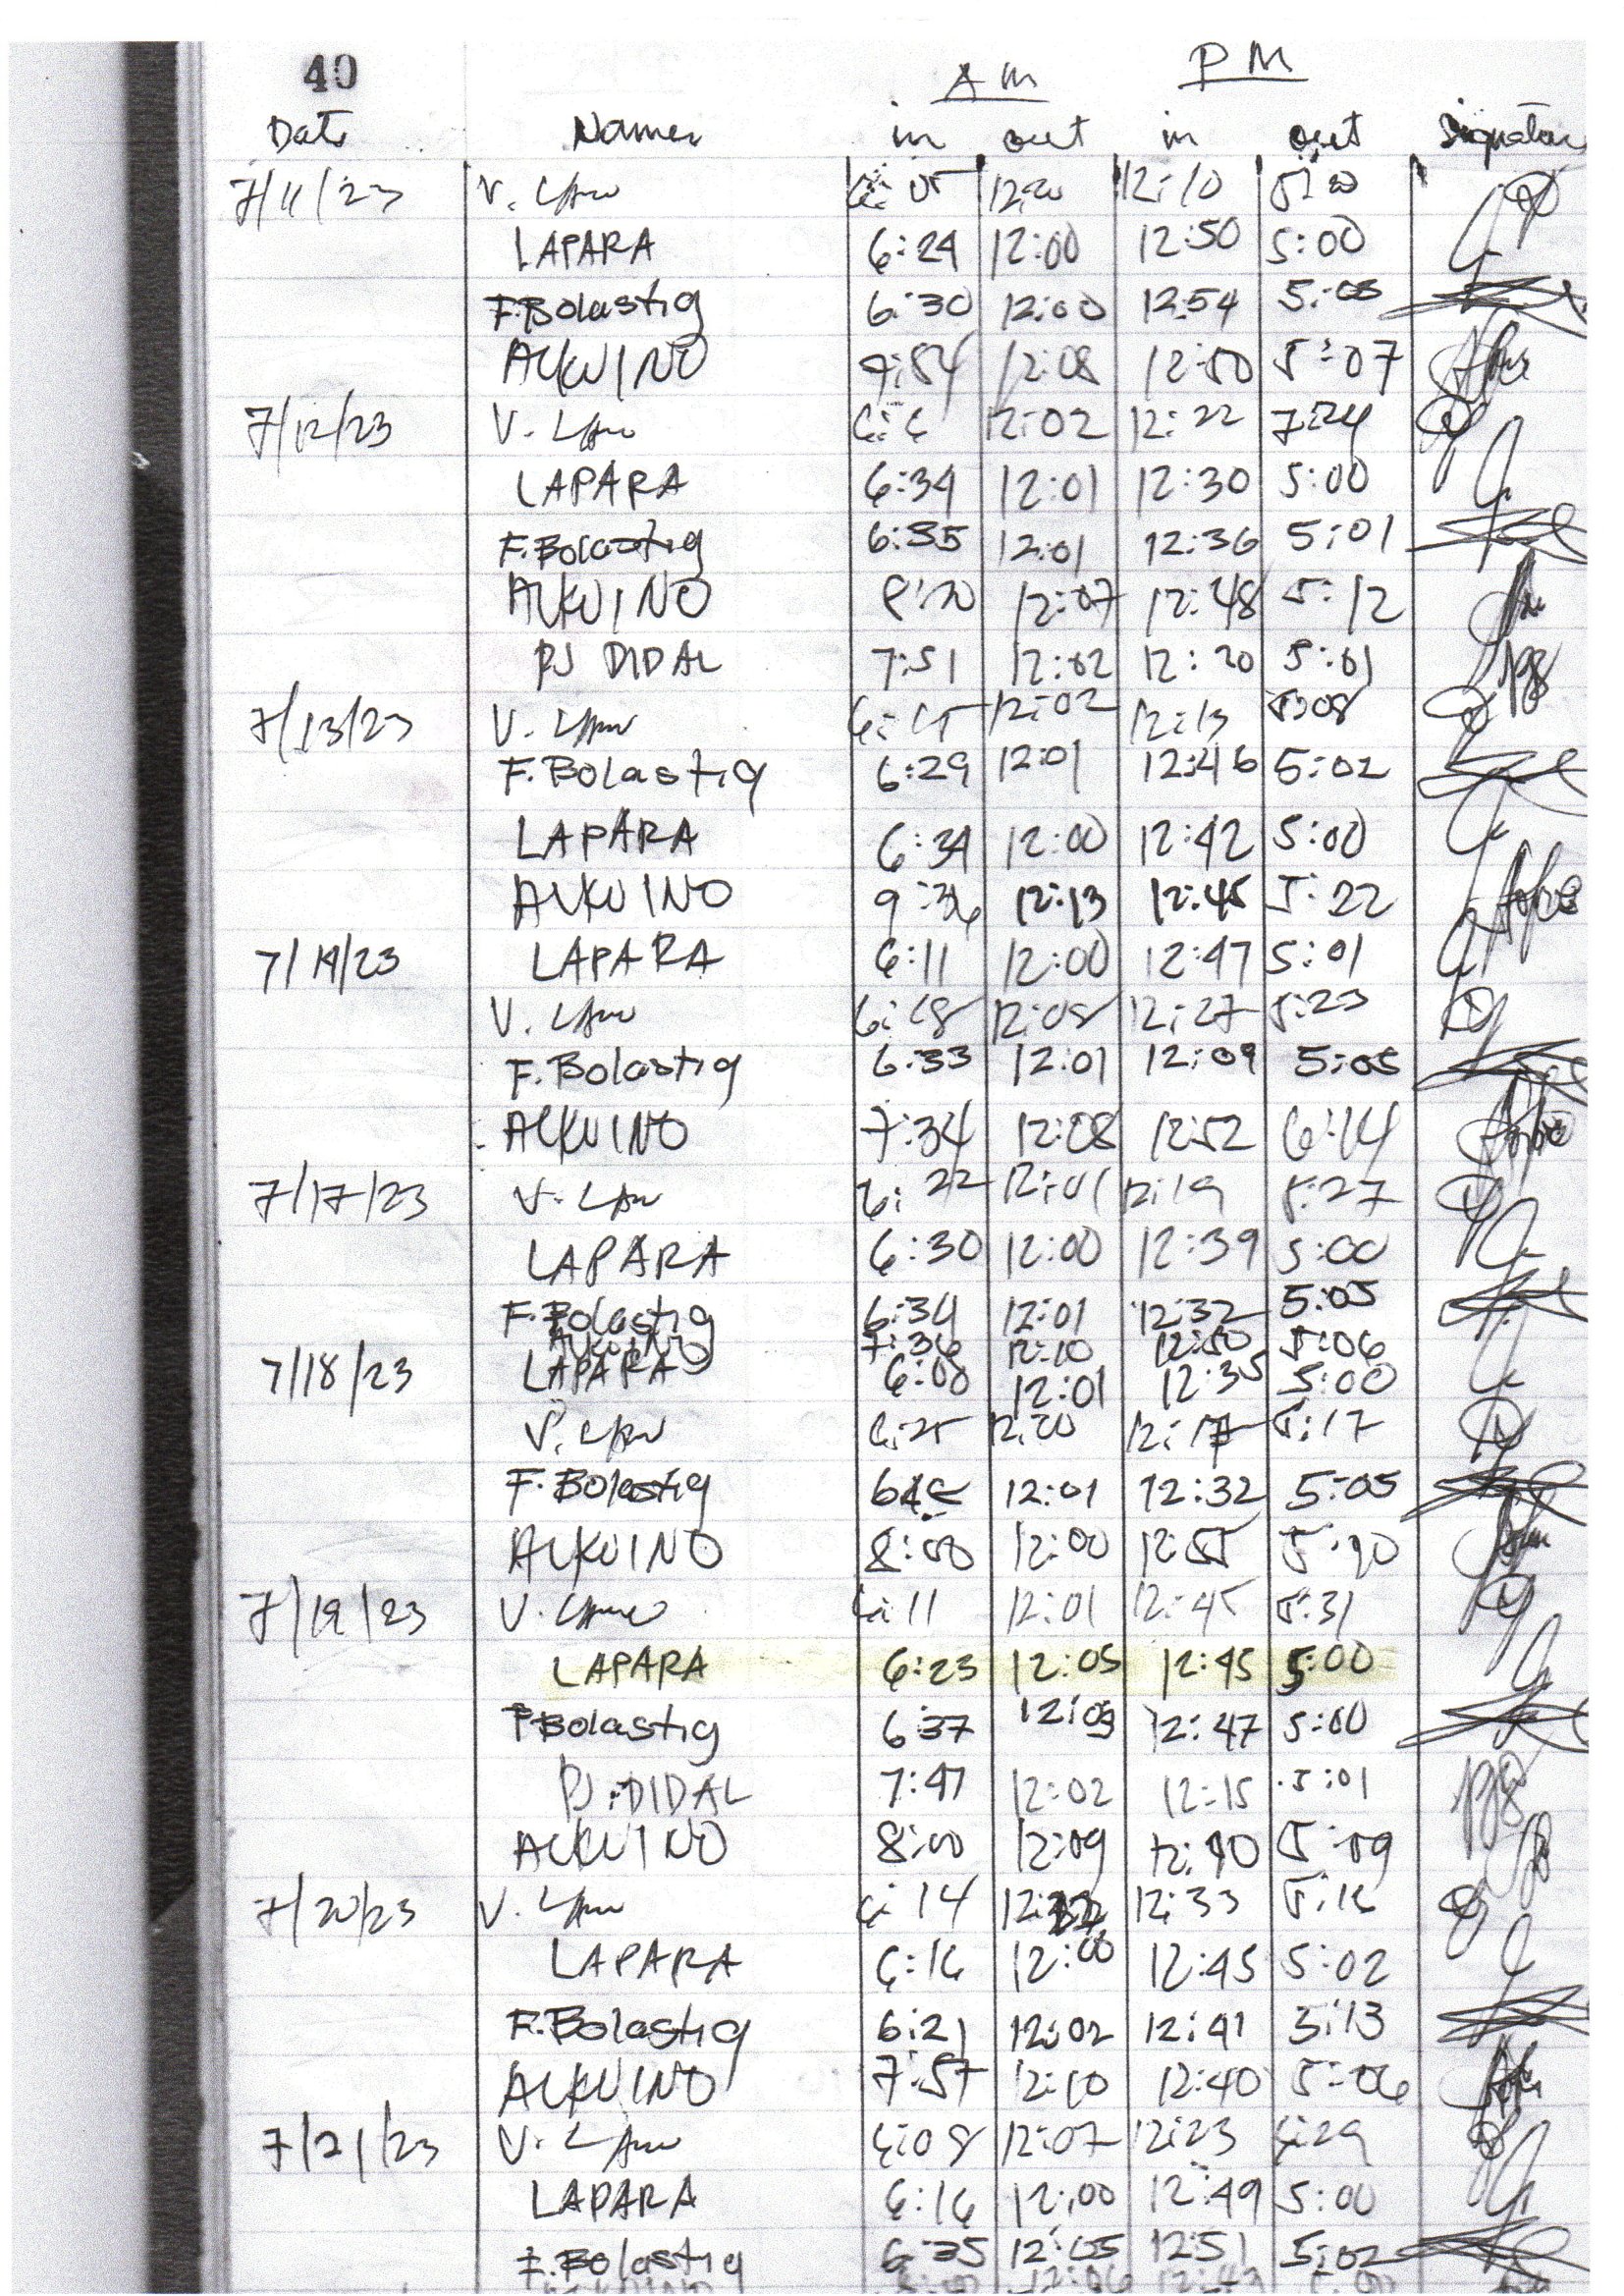 40
AM PM
Date Names in out in out Signature
7/11/23 V. 12:00 12:10 5:00
LAPARA 6:24 12:00 12:50 5:00
F.Bolastig 6:30 12:00 12:54 5:05
ALKUINO 12:08 12:50 5:07
7/12/23 V. 12:02 12:22 7:24
LAPARA 6:34 12:01 12:30 5:00
F.Bolastig 6:35 12:01 12:36 5:01
ALKUINO 12:07 12:48 5:12
PJ DIDAL 7:51 12:02 12:20 5:01
7/13/23 V. 12:02 12:13 5:08
F.Bolastig 6:29 12:01 12:46 5:02
LAPARA 6:34 12:00 12:42 5:00
ALKUINO 9:36 12:13 12:45 5:22
7/14/23 LAPARA 6:11 12:00 12:47 5:01
V. 6:18 12:08 12:27 5:23
F.Bolastig 6:33 12:01 12:09 5:05
ALKUINO 7:34 12:08 12:52 6:14
7/17/23 V. 6:22 12:01 12:19 5:27
LAPARA 6:30 12:00 12:39 5:00
F.Bolastig 6:34 12:01 12:32 5:05
ALKUINO 7:36 12:10 12:50 5:06
7/18/23 LAPARA 6:08 12:01 12:35 5:00
V. 6:25 12:00 12:17 5:17
F.Bolastig 12:01 12:32 5:05
ALKUINO 8:00 12:00 12:55
7/19/23 V. 6:11 12:01 12:45 5:31
LAPARA 6:23 12:05 12:45 5:00
F.Bolastig 6:37 12:03 12:47 5:00
PJ.DIDAL 7:47 12:02 12:15 5:01
ALKUINO 8:00 12:09 12:40 5:09
7/20/23 V. 6:14 12:33 5:16
LAPARA 6:16 12:00 12:45 5:02
F.Bolastig 6:21 12:02 12:41 5:13
ALKUINO 7:57 12:10 12:40 5:06
7/21/23 V. 6:08 12:07 12:23
LAPARA 6:16 12:00 12:49 5:00
F.Bolastig 6:35 12:05 12:51 5:02